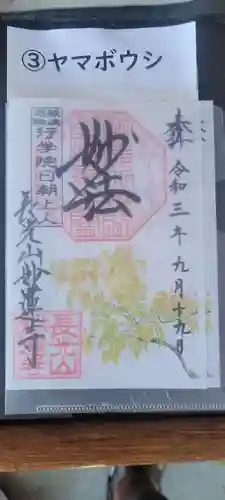 ③ヤマボウシ
奉拝
令和三年九月十九日
妙法
行学院日朝上人
長光山妙蓮寺
長光山